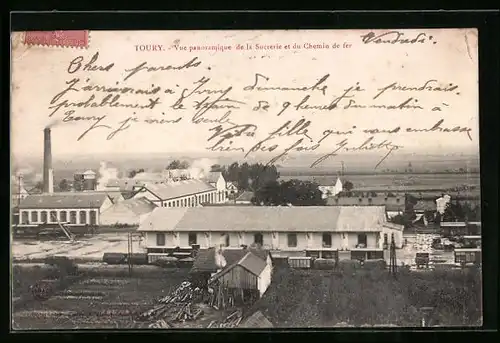 TOURY. - Vue panoramique de la Sucrerie et du Chemin de fer
Vendredi
Chers parents.
J'arriverai à Ivry dimanche je prendrais
probablement le train de 9 heures du matin à
Toury je viens seule
Votre fille qui vous embrasse
bien des fois Juliette